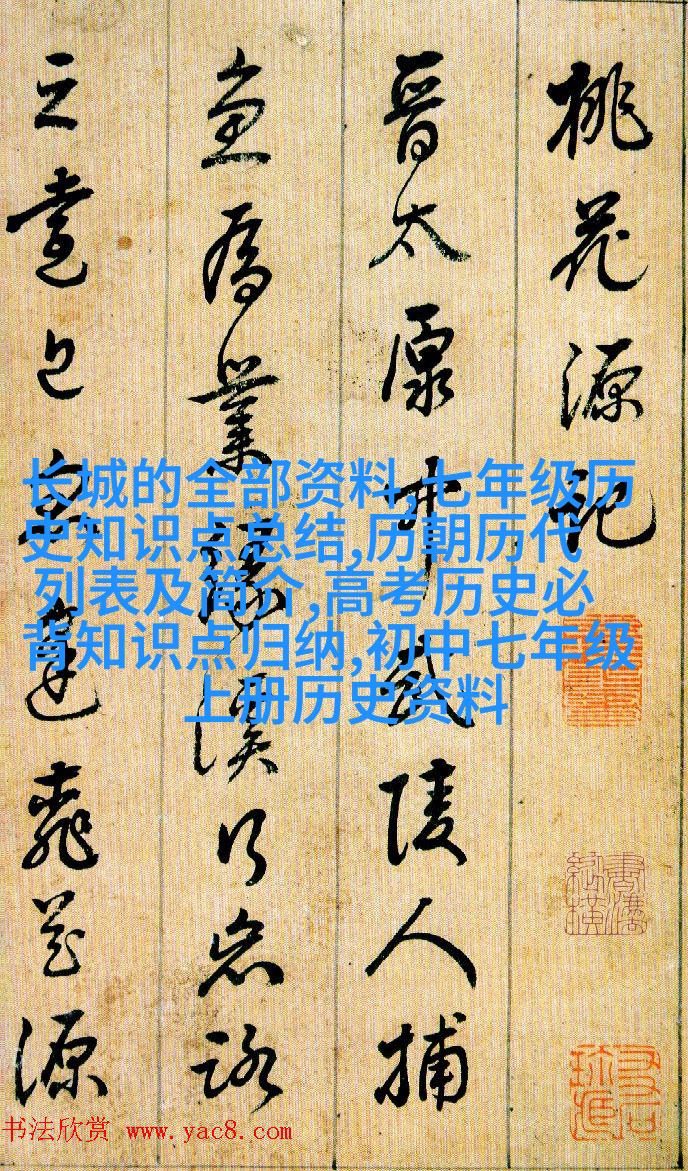 桃花源記
晉太原中武陵人捕
魚為業緣溪行忘路
之
源
长城的全部资料,七年级历
史知识点总结,历朝历代
列表及简介,高考历史必
背知识点归纳,初中七年级
上册历史资料
书法欣赏 www.yac8.com